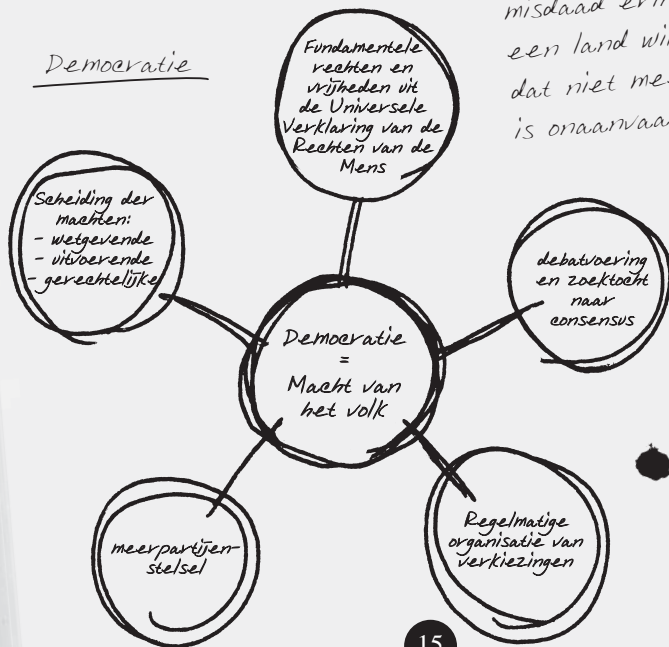 Democratie
misdaad
een land
dat niet
is onaanvaa
Fundamentele
rechten en
vrijheden uit
de Universele
Verklaring van de
Rechten van de
Mens
Scheiding der
machten:
- wetgevende
- uitvoerende
- gerechtelijke
debatvoering
en zoektocht
naar
consensus
Democratie
=
Macht van
het volk
meerpartijen-
stelsel
Regelmatige
organisatie van
verkiezingen
15